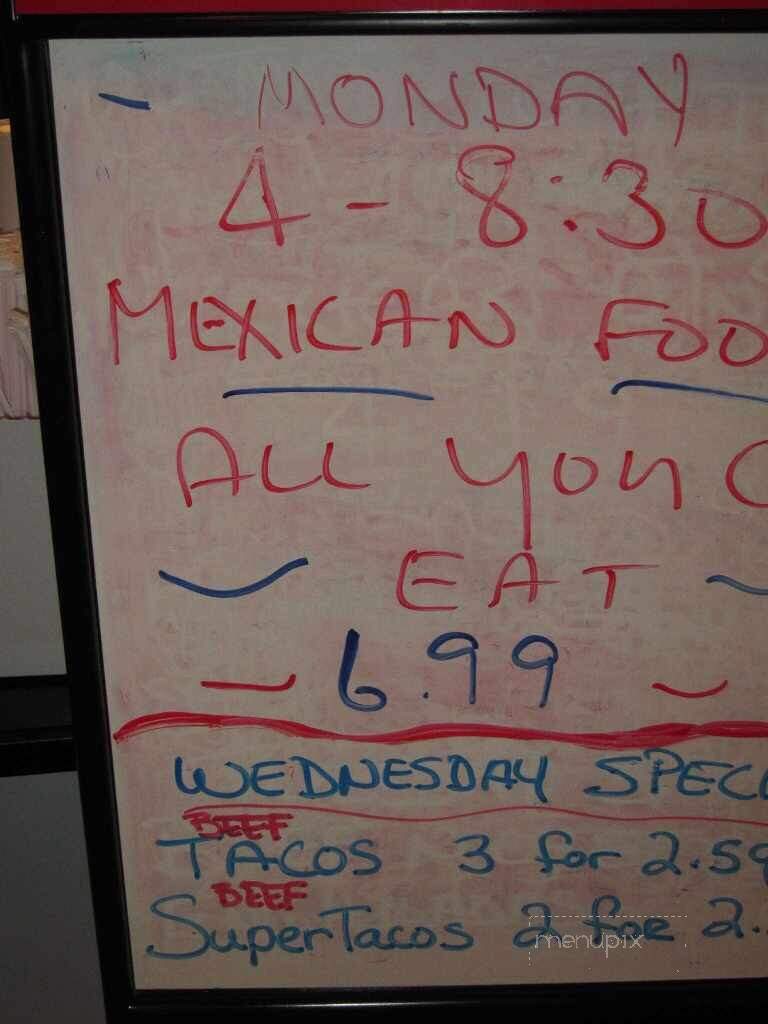 - MONDAY
4 - 8:30
MEXICAN FOO
ALL YOU C
EAT
6.99
WEDNESDAY SPEC
BEEF
TACOS 3 for 2.59
BEEF
SuperTacos 2 for 2.
menupix